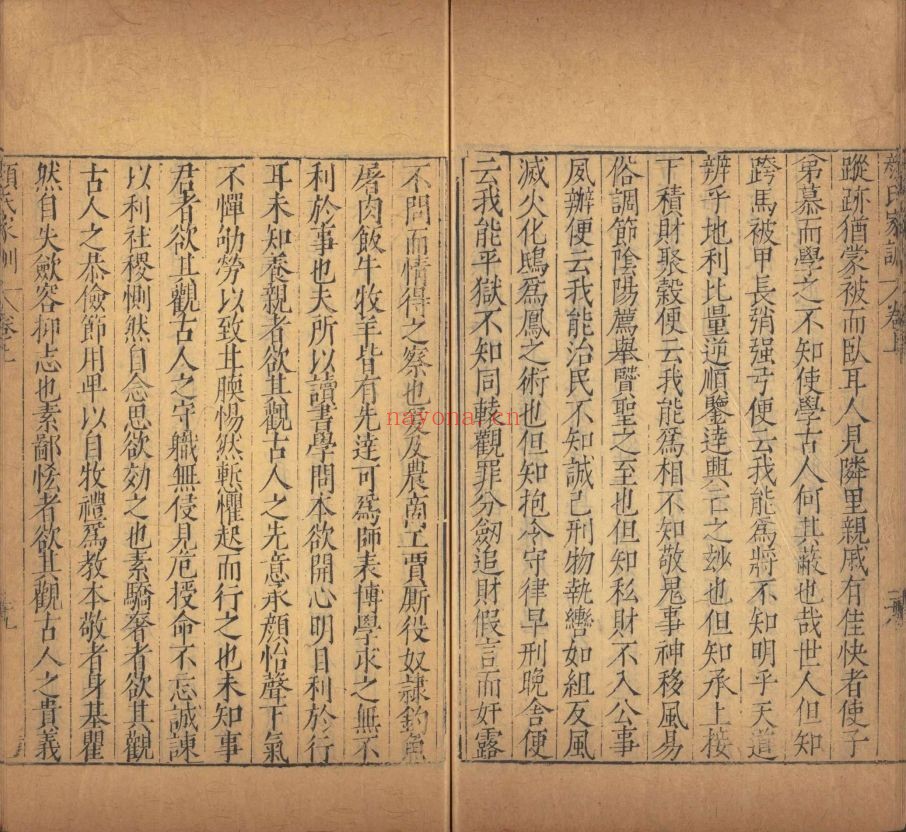 顔氏家訓 卷上
蹤疏猶蒙被而臥耳人見隣里親戚有佳快者使子
弟慕而學之不知使學古人何其蔽也哉世人但知
跨馬被甲長矟强弓便云我能爲將不知明乎天道
辨乎地利比量逆順鑒達興亡之玅也但知承上接
下積財聚穀便云我能爲相不知敬鬼事神移風易
俗調節陰陽薦舉賢聖之至也但知私財不入公事
夙辦便云我能治民不知誠己刑物執轡如組反風
滅火化鴟爲鳳之術也但知抱令守律早刑晚舎便
云我能平獄不知同轅觀罪分劔追財假言而奸露
不問而情得之察也爰及農商工賈厮役奴隷釣魚
屠肉飯牛牧羊皆有先達可爲師表博學求之無不
利於事也夫所以讀書學問本欲開心明目利於行
耳未知養親者欲其觀古人之先意承顔怡聲下氣
不憚劬勞以致其腝惕然慙懼起而行之也未知事
君者欲其觀古人之守職無侵見危授命不忘誠諫
以利社稷惻然自念思欲効之也素驕奢者欲其觀
古人之恭儉節用卑以自牧禮爲教本敬者身基瞿
然自失歛容抑志也素鄙悋者欲其觀古人之貴義
顔氏家訓 卷上
nayona.cn